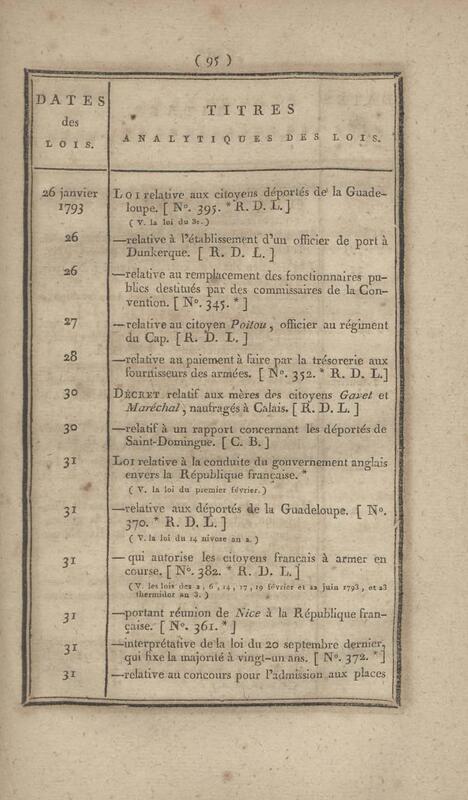 ( 95 )
DATES
des
LOIS.
TITRES
ANALYTIQUES DES LOIS.
26 janvier
1793
LOI relative aux citoyens déportés de la Guade-
loupe. [ Nº. 395. * R. D. L. ]
( V. la loi du 31. )
26
—relative à l'établissement d'un officier de port à
Dunkerque. [ R. D. L. ]
26
—relative au remplacement des fonctionnaires pu-
blics destitués par des commissaires de la Con-
vention. [ Nº. 345. * ]
27
—relative au citoyen Poitou, officier au régiment
du Cap. [ R. D. L. ]
28
—relative au paiement à faire par la trésorerie aux
fournisseurs des armées. [ Nº. 352. * R. D. L.]
30
DÉCRET relatif aux mères des citoyens Gavet et
Maréchal, naufragés à Calais. [ R. D. L. ]
30
—relatif à un rapport concernant les déportés de
Saint-Domingue. [ C. B. ]
31
LOI relative à la conduite du gouvernement anglais
envers la République française. *
( V. la loi du premier février. )
31
—relative aux déportés de la Guadeloupe. [ Nº.
370. * R. D. L. ]
( V. la loi du 14 nivose an 2. )
31
— qui autorise les citoyens français à armer en
course. [ Nº. 382. * R. D. L. ]
(V. les lois des 2, 6, 14, 17, 19 février et 22 juin 1793, et 23
thermidor an 3. )
31
—portant réunion de Nice à la République fran-
çaise. [ Nº. 361. * ]
31
—interprétative de la loi du 20 septembre dernier,
qui fixe la majorité à vingt-un ans. [ Nº. 372. * ]
31
—relative au concours pour l'admission aux places